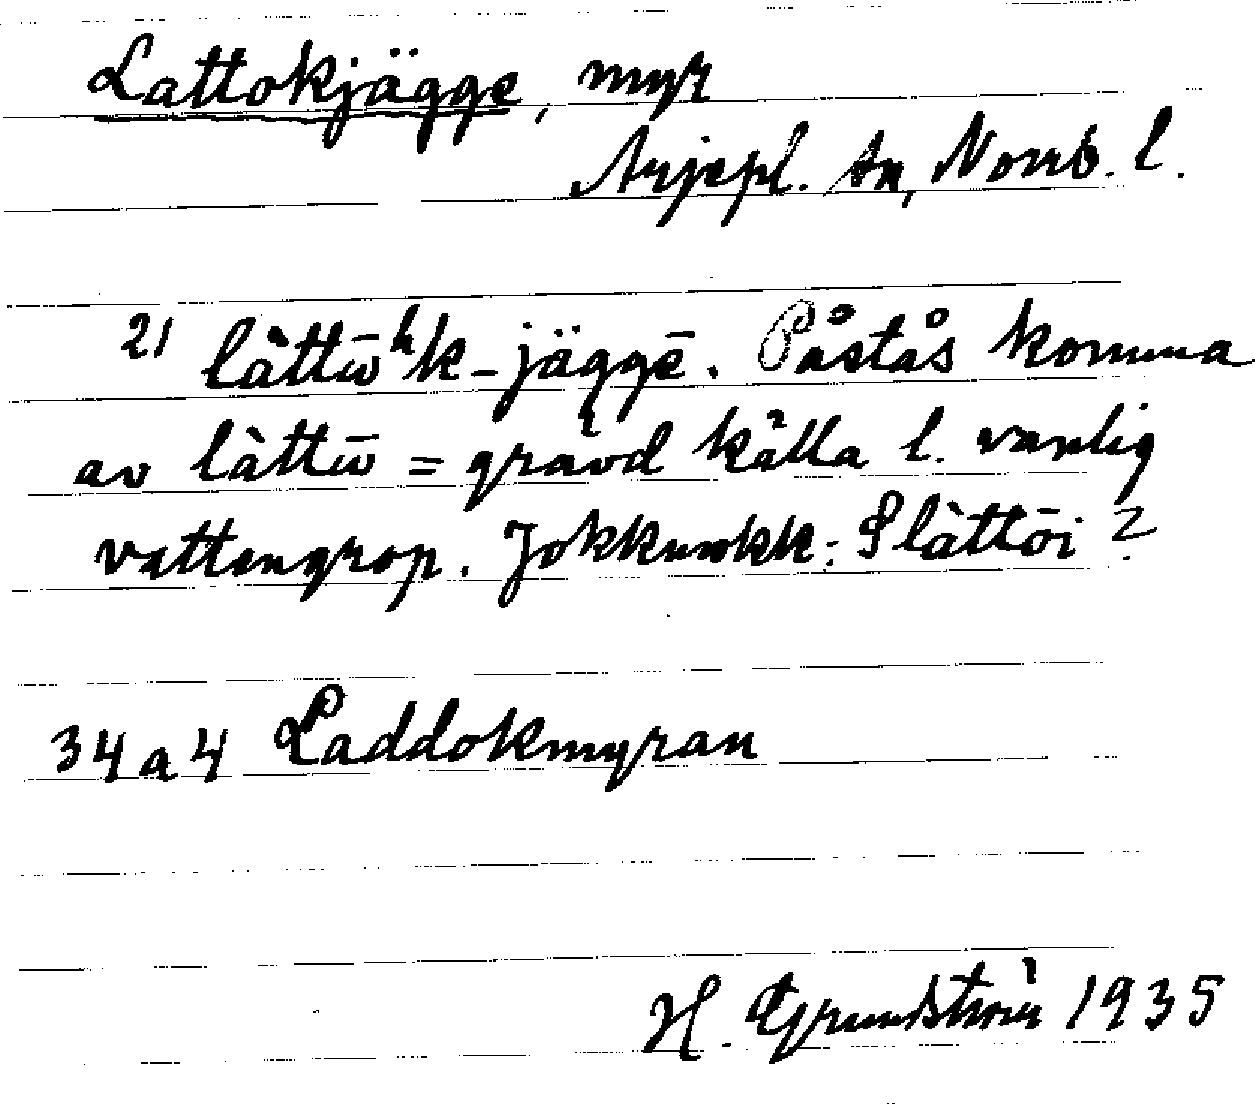 Lattokjägge, myr
Arjepl. sn, Norrb. l.
21 làttūʰk-jäggē. Påstås komma
av làttū = grävd källa l. vanlig
vattengrop. Jokkmokk: Slàttōi?
34a4 Laddokmyran
H. Grundström 1935